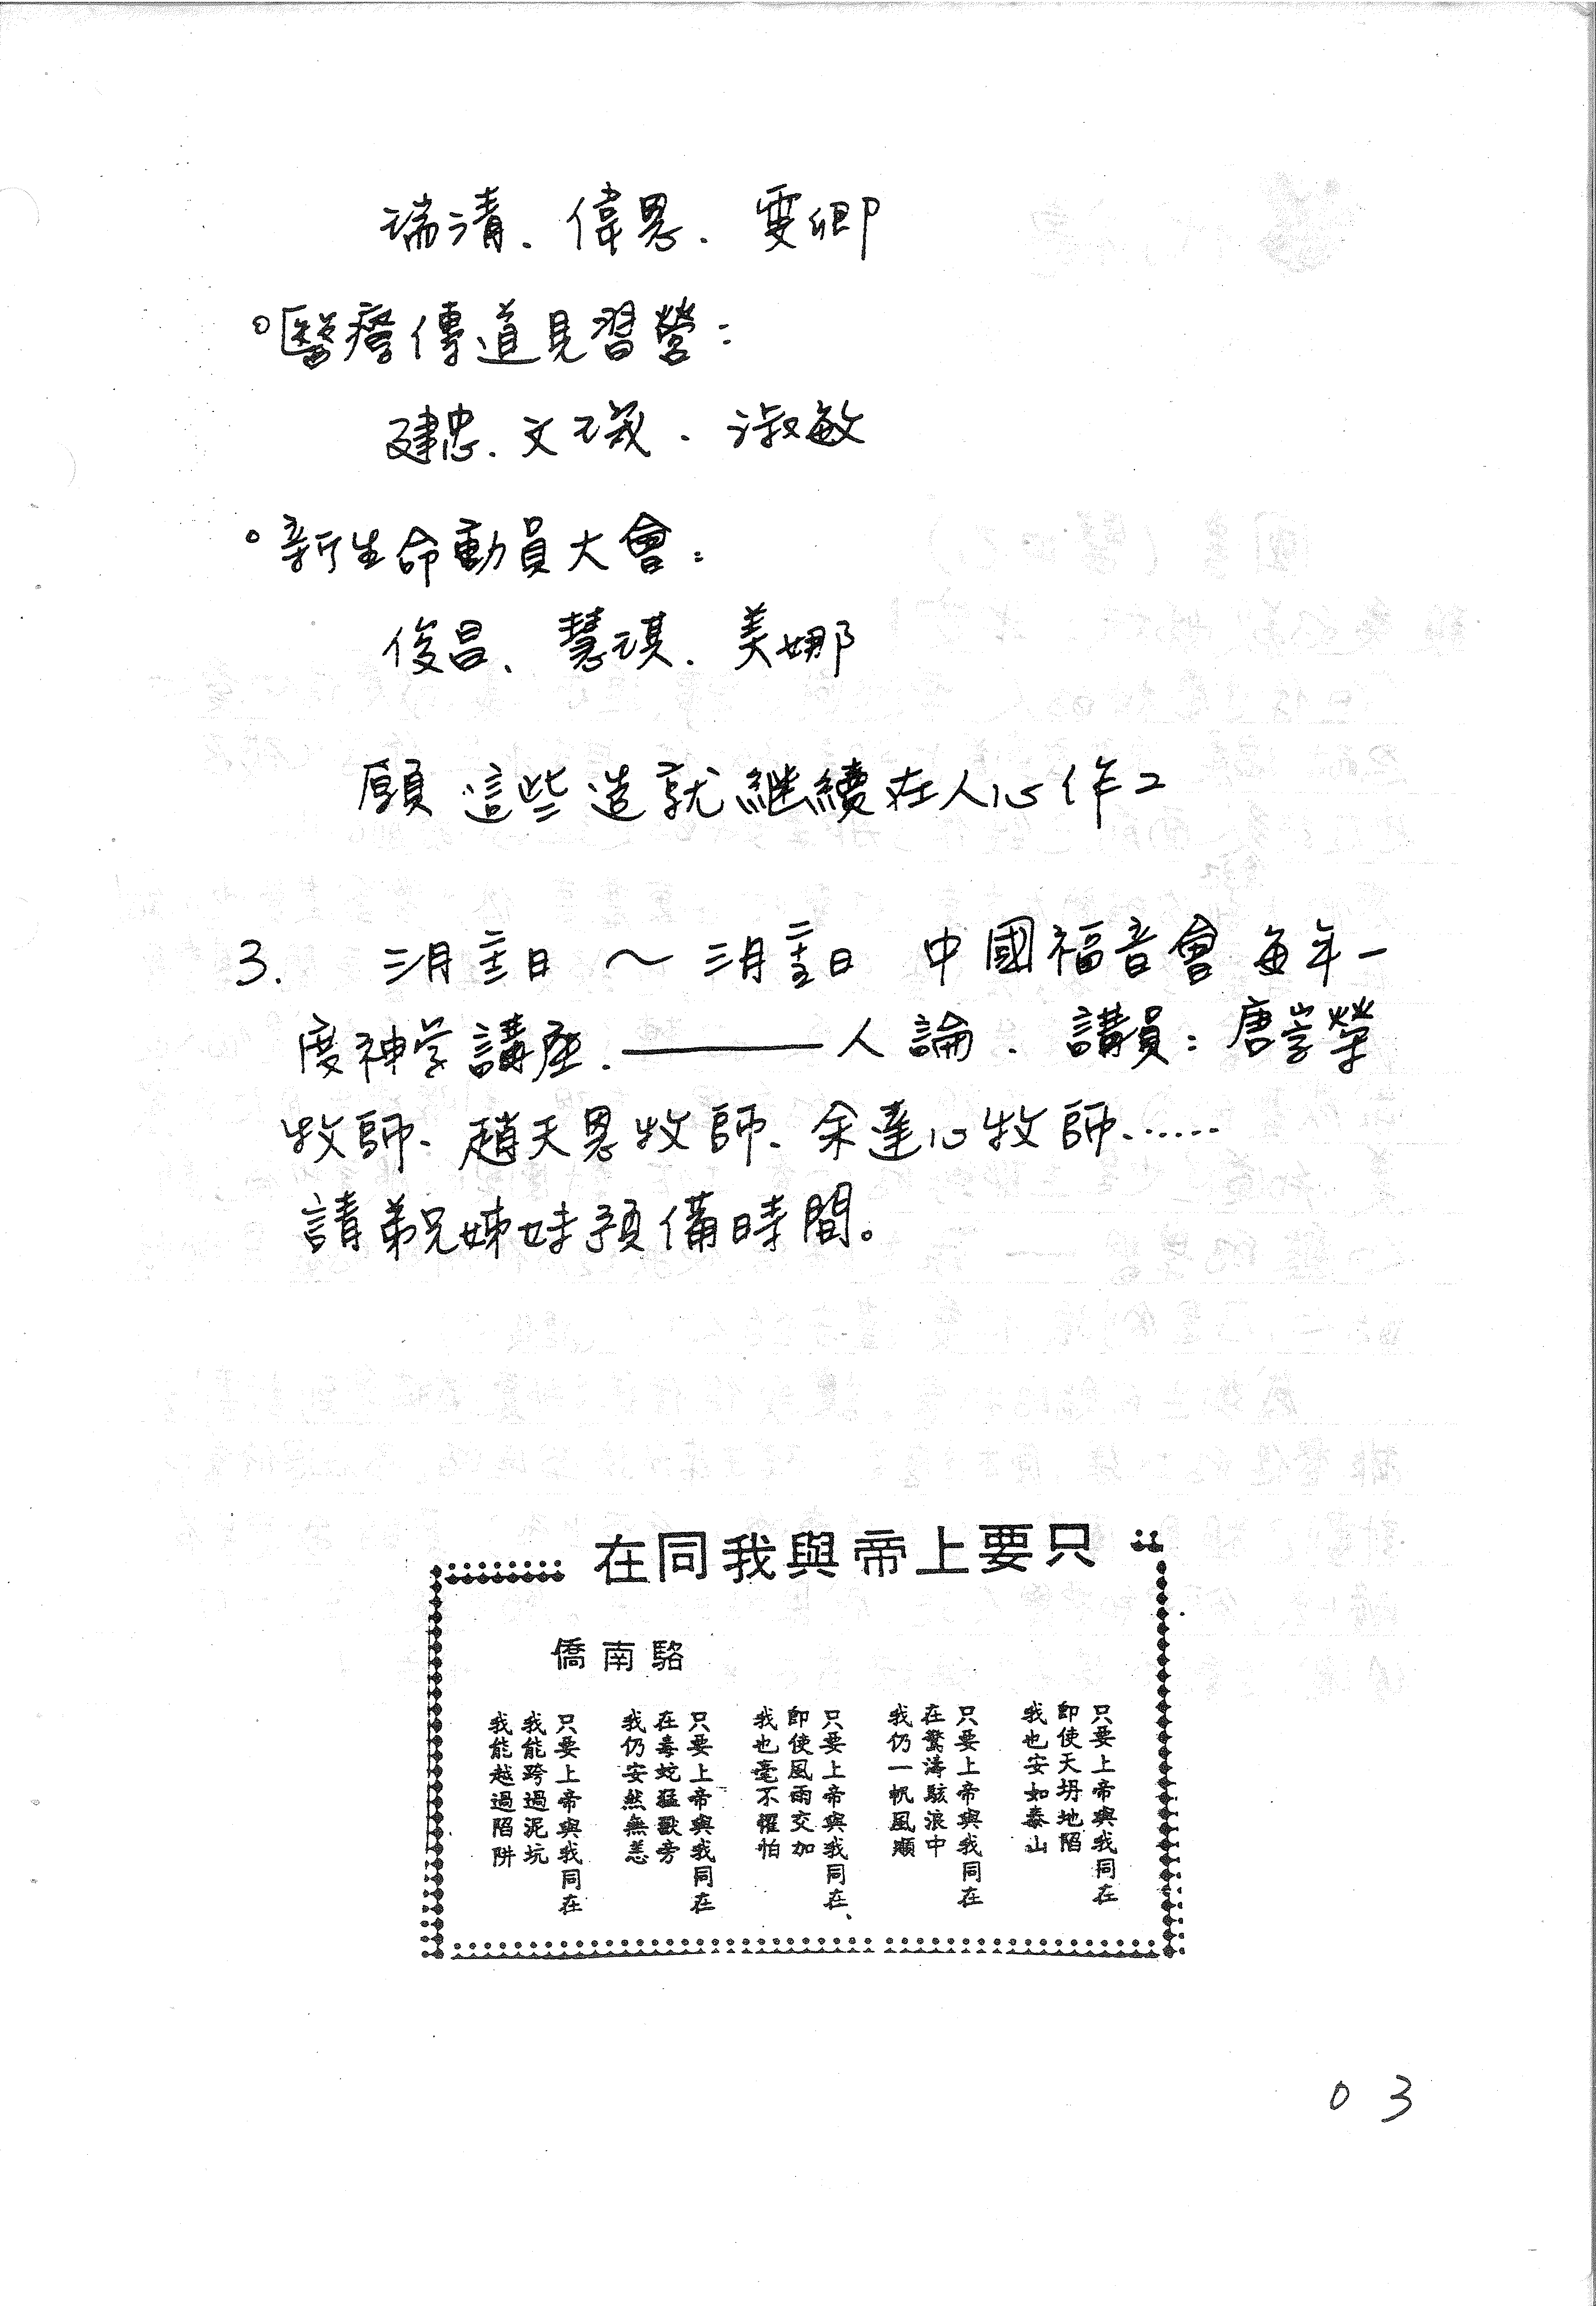 瑞清、偉恩、雯卿
。醫療傳道見習營：
建忠、文珷、淑敏
。新生命動員大會：
俊昌、慧琪、美娜
願這些造就繼續在人心作工
3. 三月二十二日～三月二十五日 中國福音會每年一
度神学講座.———人論、講員：唐崇榮
牧師、趙天恩牧師、余達心牧師......
請弟兄姊妹預備時間。
只要上帝與我同在
駱南僑
只要上帝與我同在
即使天坍地陷
我也安如泰山
只要上帝與我同在
在驚濤駭浪中
我仍一帆風順
只要上帝與我同在
即使風雨交加
我也毫不懼怕
只要上帝與我同在
在毒蛇猛獸旁
我仍安然無恙
只要上帝與我同在
我能跨過泥坑
我能越過陷阱
03